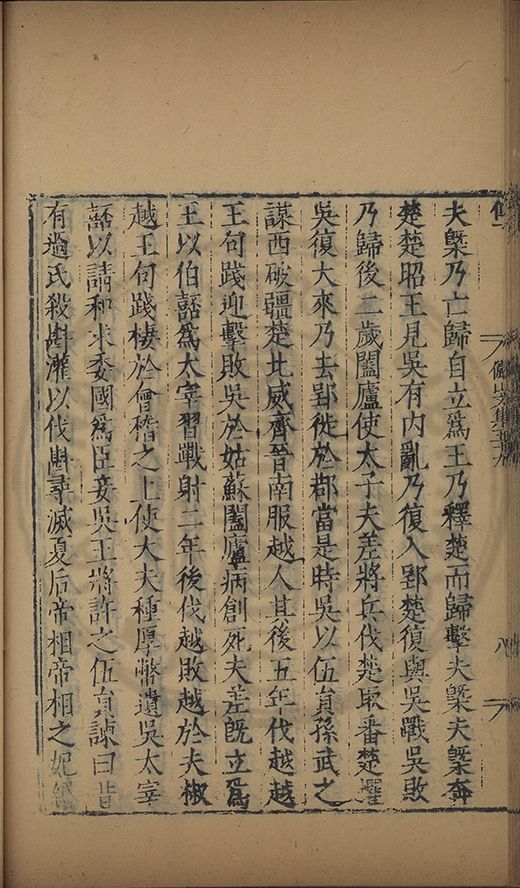 夫槩乃亡歸自立爲王乃釋楚而歸擊夫槩夫槩奔
楚楚昭王見吳有内亂乃復入郢楚復與吳戰吳敗
乃歸後二歲闔廬使太子夫差將兵伐楚取番楚懼
吳復大來乃去郢徙於鄀當是時吳以伍員孫武之
謀西破彊楚北威齊晉南服越人其後五年伐越越
王句踐迎擊敗吳於姑蘇闔廬病創死夫差既立爲
王以伯嚭爲太宰習戰射二年後伐越敗越於夫椒
越王句踐棲於會稽之上使大夫種厚幣遺吳太宰
嚭以請和求委國爲臣妾吳王將許之伍員諫曰昔
有過氏殺斟灌以伐斟尋滅夏后帝相帝相之妃
八